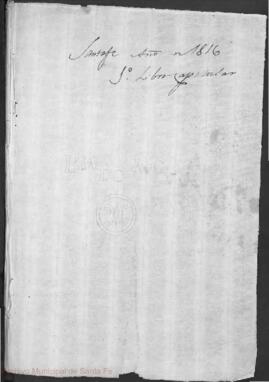 Santafe Año de 1816
Libro capitular
Archivo Municipal de Santa Fe